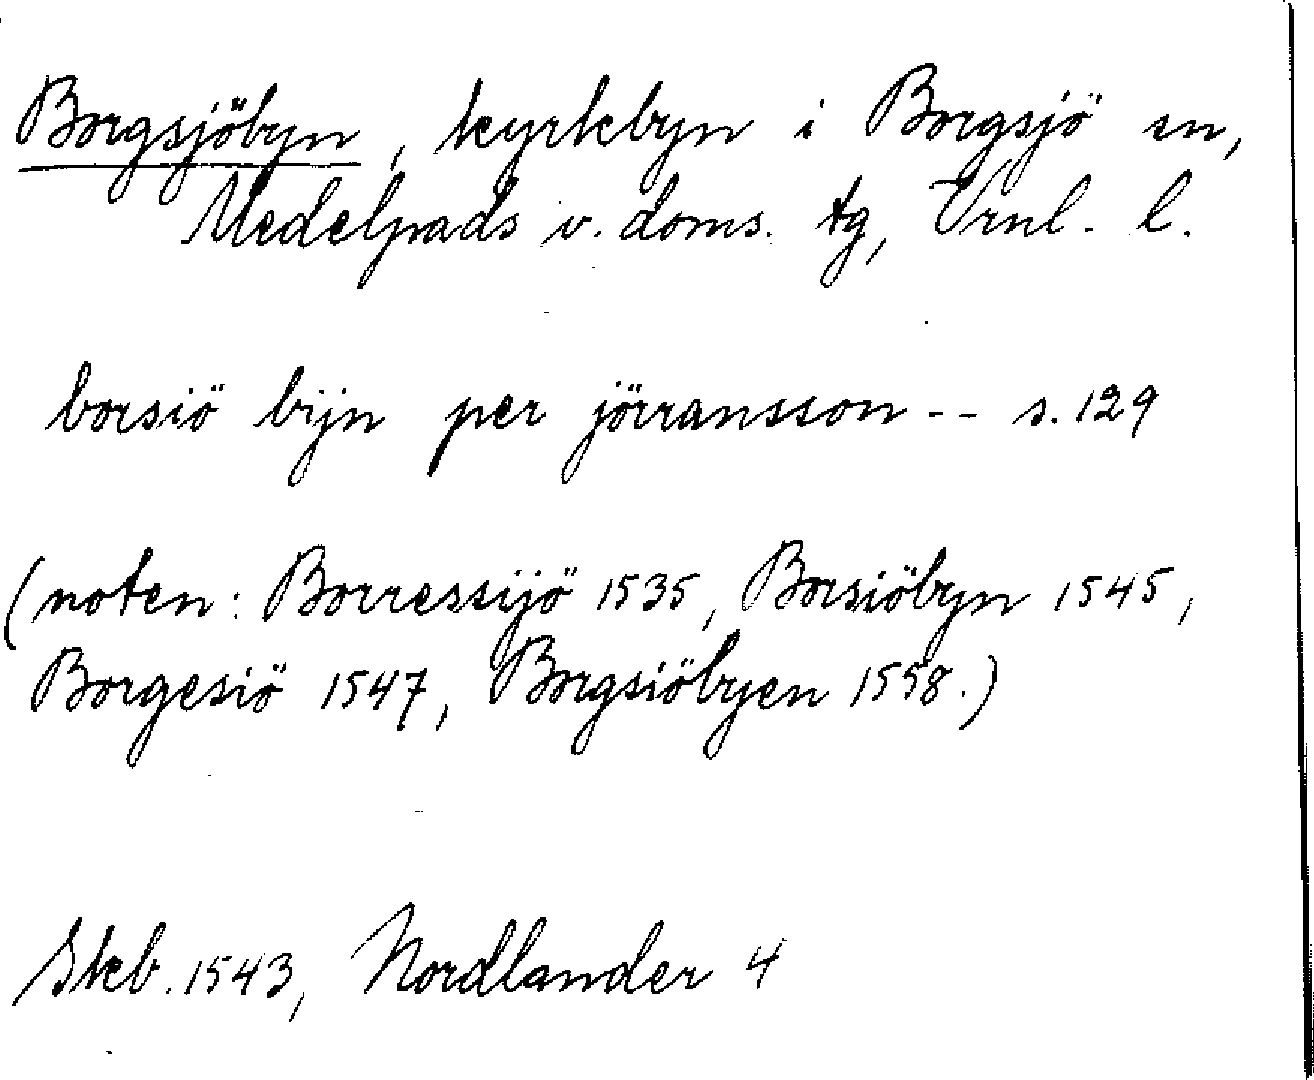 Borgsjöbyn, kyrkbyn i Borgsjö sn,
Medelpads v. doms. tg, Vrnl. l.
borsiö bijn per jörransson -- s. 129
(noten: Borressijö 1535, Borsiöbyn 1545,
Borgesiö 1547, Borgsiöbyen 1558.)
Skb. 1543, Nordlander 4